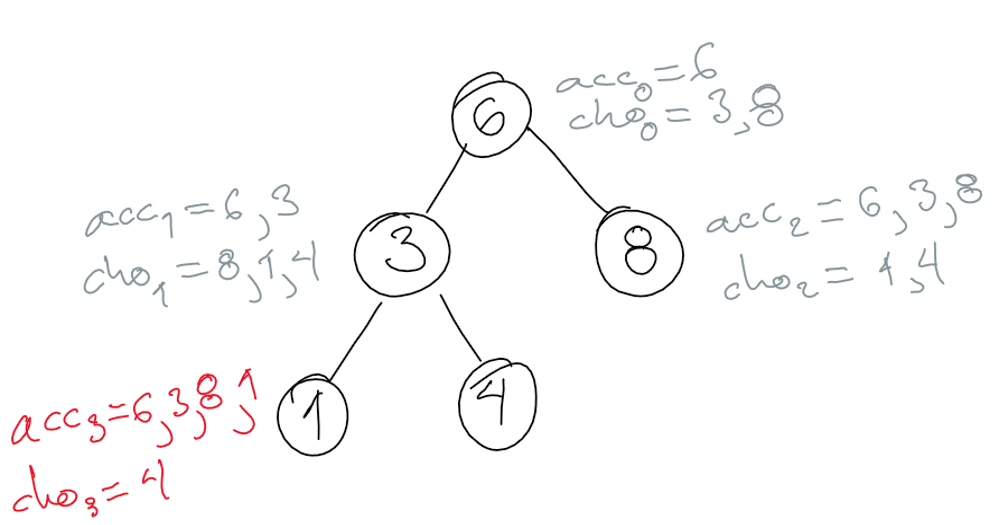 acc₀ = 6
cho₀ = 3, 8
6
acc₁ = 6, 3
cho₁ = 8, 1, 4
3
8
acc₂ = 6, 3, 8
cho₂ = 1, 4
acc₃ = 6, 3, 8, 1
cho₃ = 4
1
4